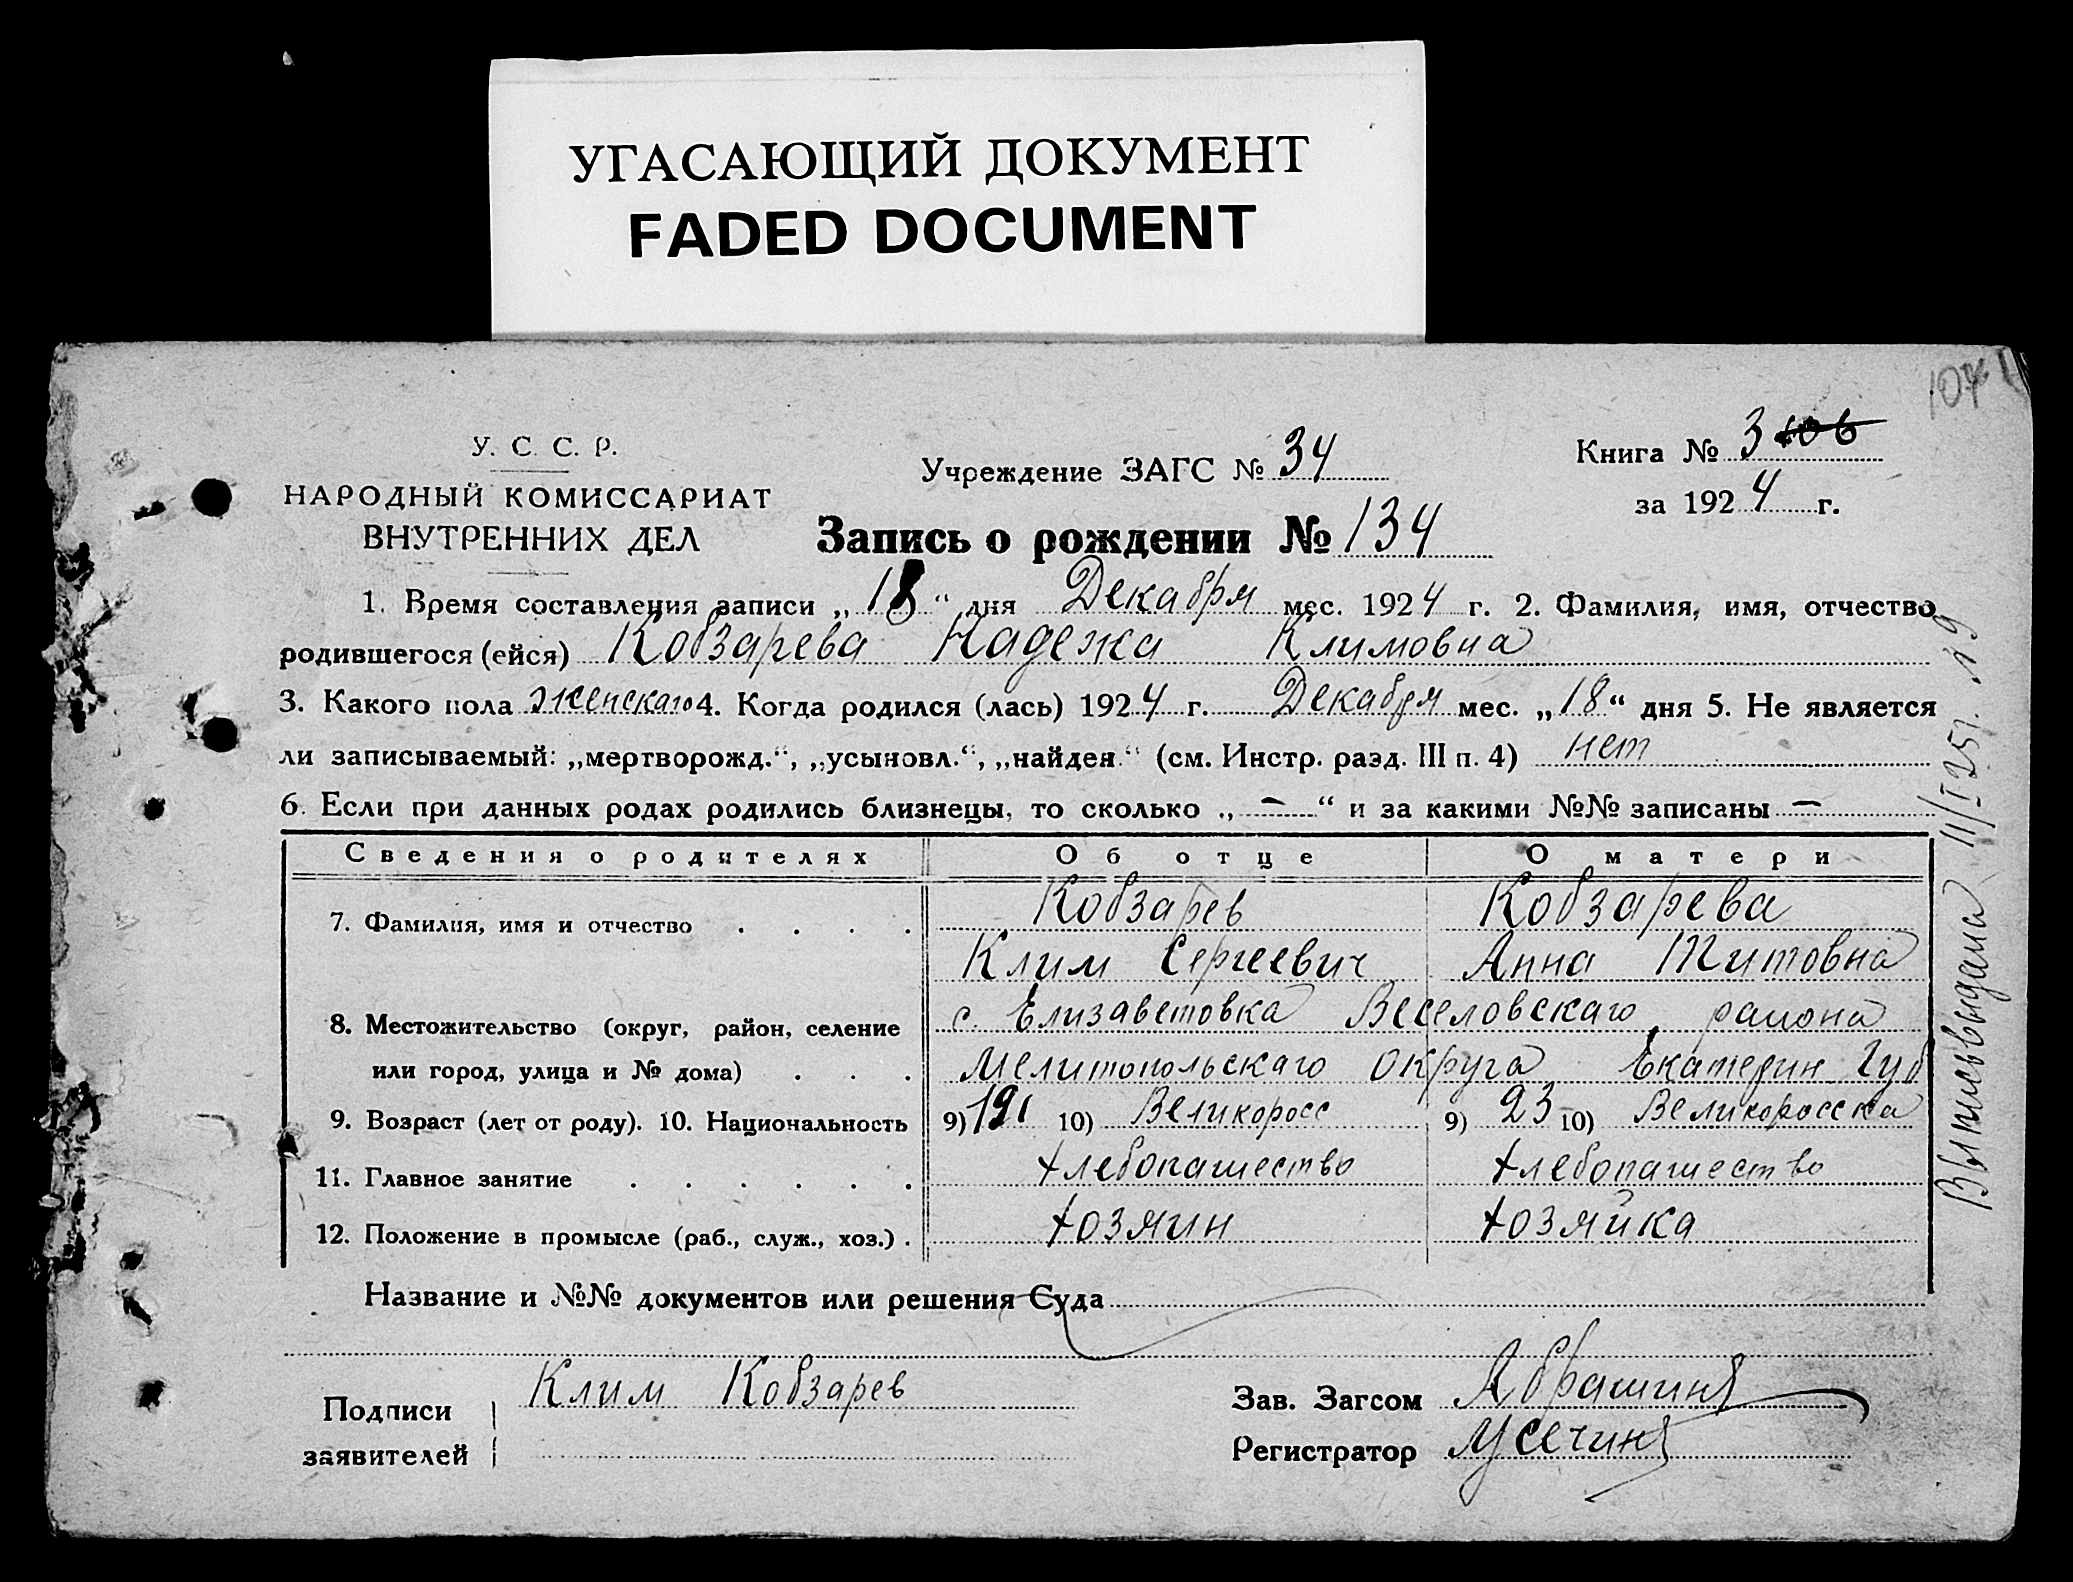 УГАСАЮЩИЙ ДОКУМЕНТ
FADED DOCUMENT
У. С. С. Р.
НАРОДНЫЙ КОМИССАРИАТ
ВНУТРЕННИХ ДЕЛ
Учреждение ЗАГС № 34
Книга № 3 106
за 1924 г.
Запись о рождении № 134
1. Время составления записи „18“ дня Декабря мес. 1924 г. 2. Фамилия, имя, отчество
родившегося (ейся) Кобзарева Надежа Климовна
3. Какого пола женскаго 4. Когда родился (лась) 1924 г. Декабря мес. „18“ дня 5. Не является
ли записываемый: „мертворожд.“, „усыновл.“, „найден.“ (см. Инстр. разд. III п. 4) нет
6. Если при данных родах родились близнецы, то сколько „—“ и за какими №№ записаны —
Сведения о родителях Об отце О матери
7. Фамилия, имя и отчество . . . . Кобзарев Кобзарева
Клим Сергеевич Анна Титовна
8. Местожительство (округ, район, селение с. Елизаветовка Веселовскаго района
или город, улица и № дома) . . . Мелитопольскаго округа Екатерин Губ
9. Возраст (лет от роду). 10. Национальность 9) 10) Великоросс 9) 23 10) Великоросска
11. Главное занятие . . . . . . Хлебопашество Хлебопашество
12. Положение в промысле (раб., служ., хоз.) . Хозяин Хозяйка
Название и №№ документов или решения Суда
Подписи
заявителей
Клим Кобзарев
Зав. Загсом Абрашин
Регистратор Усечин
Выпись выдана 11/I 25 г. № 9